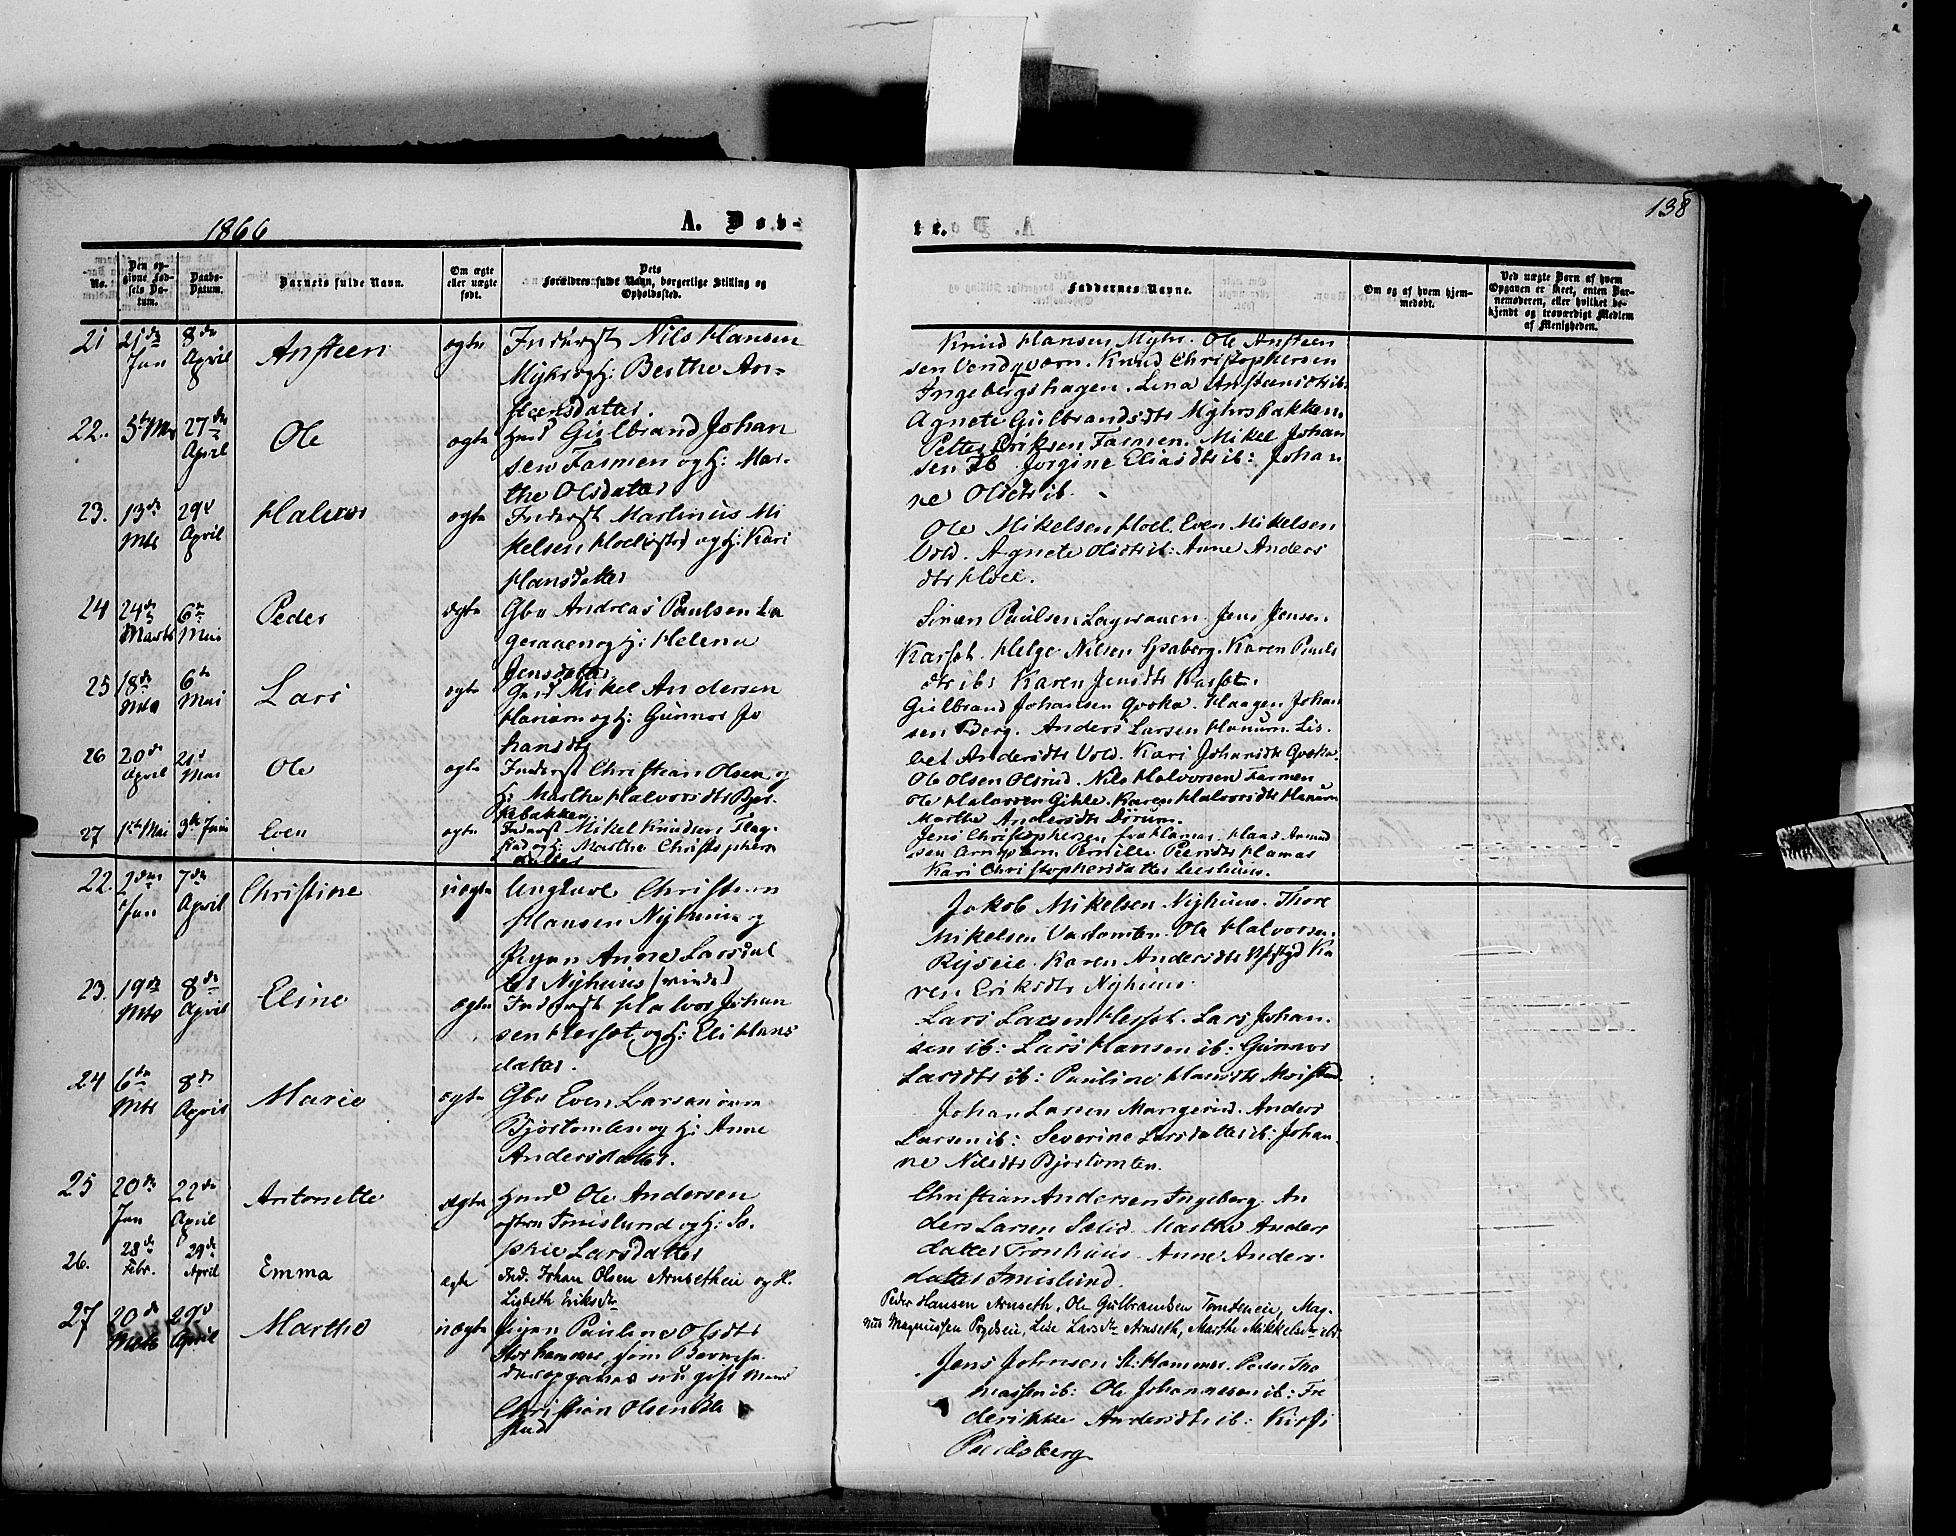 138
1866
A. Døb-
te.
No.
Den opgivne Fødsels Datum.
Daabs-Datum.
Barnets fulde Navn.
Om ægte eller uægte født.
Dets Forældres fulde Navn, borgerlige Stilling og Opholdssted.
Faddernes Navne.
Om og af hvem hjemmedøbt.
Ved uægte Børn af hvem Opgaven er skeet, enten Barnemoderen, eller hvilket bekjendt og troværdigt Medlem af Menigheden.
21 21de Jan 8de April Ansteen ægte
Inderst Nils Hansen
Myhr og H: Berthe An-
steensdatter.
Knud Hansen Myhr. Ole Ansteen
sen Vendqværn. Knud Christophersen
Ingebergshagen. Lina Ansteensdtr ib:
Agnete Gulbrandsdtr Myhrsbakken.
22. 5te Mts 27de April Ole ægte
Husd Gulbrand Johan
sen Farmen og H: Mar-
the Olsdatter
Petter Eriksen Farmen. Mikel Johan
sen ib Jørgine Eliasdtr ib: Johan
ne Olsdtr ib.
23. 13de Mts 29d April Halvor ægte
Inderst Martinus Mi
kelsen Hoel og H: Kari
Hansdatter
Ole Mikelsen Hoel. Even Mikelsen
Vold. Agnete Olsdtr ib: Anne Anders
dtr Hoel.
24 24de Marts 6te Mai Peder ægte
Gbr Andreas Paulsen La
geraaen og H: Helena
Jensdatter
Simen Paulsen Lageraaen. Jens Jensen
Karset. Helge Nilsen Gaaberg. Karen Pauls
dtr ib: Karen Jensdtr Karset.
25 18de Mts 6te Mai Lars ægte
Husd Mikel Andersen
Hanum og H: Gunnor Jo
hansdtr
Gulbrand Johansen Qvska. Haagen Johan
sen Berg. Anders Larsen Hanum. Lis-
bet Andersdtr Vold. Kari Johansdtr Qvska.
26 20de April 21d Mai Ole ægte
Inderst Christian Olsen og
H: Marthe Halvorsdtr Bjer-
kebakken
Ole Olsen Olsrud. Nils Halvorsen Farmen
Ole Halvorsen Gihle. Karen Halvorsdtr Hanum
Marthe Andersdtr Dørum.
27 1ste Mai 3de Juni Even ægte
Inderst Mikel Knudsen Flag-
stad og H: Marthe Christophers
datter
Jens Christophersen fra Hamar. Hans Amund
sen Arnqværn Pernille Peersdtr Hamar
Kari Christophersdatter Lieshuus.
22. 2den Jan 7de April Christine uægte
Ungkarl Christian
Hansen Nyhuus og
Pigen Anne Larsdat
ter Nyhuus
Jakob Mikelsen Nyhuus. Thore
Mikelsen Vestomten. Ole Halvorsen
Ryseie. Karen Andersdtr Opstyd Ka
ren Eriksdtr Nyhuus.
23. 19de Mts 8de April Eline ægte
Inderst Halvor Johan
sen Herset og H: Eli Hans
datter.
Lars Larsen Herset. Lars Johan.
sen ib: Lars Hansen ib: Gunnor
Larsdtr ib: Pauline Hansdtr
24 6te Mts 8de April Marie ægte
Gbr Even Larsen
Bjørtomten og H: Anne
Andersdatter.
Johan Larsen Mangerud. Anders
Larsen ib: Severine Larsdatter ib: Johan
ne Nilsdtr Bjørtomten.
25 20de Jan 22de April Antonette ægte
Husd Ole Andersen
østre Imislund og H: So.
phie Larsdatter
Christian Andersen Ingeberg. An
ders Larsen Sælid. Marthe Anders
datter Tronhuus. Anne Anders.
datter Imislund.
26. 28de Febr. 29de April Emma ægte
Ind. Johan Olsen Arnsetheie og H.
Lisbeth Eriksdtr
Peder Hansen Arnseth. Ole Gulbrandsen Tomteneie, Mag-
nus Magnussen Prydseie, Lise Larsdtr Arnseth, Marthe Mikkelsdtr ib
27 20de Mts 29d April Marthe uægte
Pigen Pauline Olsdtr
Storhammer, som Barnefa
der opgaves
Christian Olsen
stad
Jens Johnsen St: Hammer. Peder Tho
massen ib: Ole Johannesen ib: Fre
derikke Andersdtr ib: Kirsti
Paulsberg